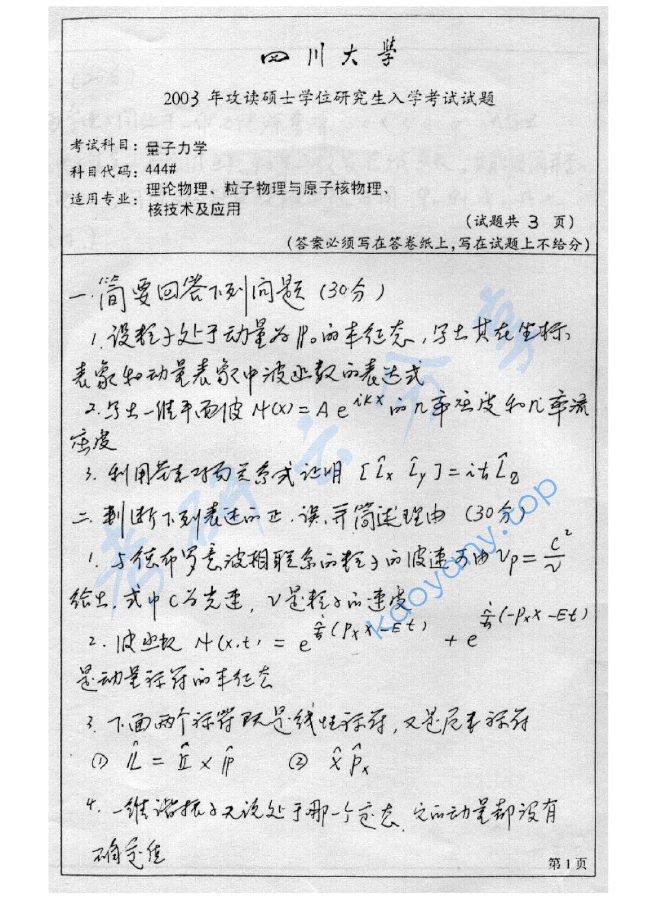 四川大学
2003年攻读硕士学位研究生入学考试试题
考试科目：量子力学
科目代码：444#
适用专业：理论物理、粒子物理与原子核物理、
核技术及应用
（试题共 3 页）
（答案必须写在答卷纸上，写在试题上不给分）
一.简要回答下列问题（30分）
1.设粒子处于动量为P₀的本征态，写出其在坐标
表象和动量表象中波函数的表达式
2.写出一维平面波 ψ(x)=A e^{ikx} 的几率密度和几率流
密度
3.利用基本对易关系式证明 [L̂x L̂y]=iħL̂z
二.判断下列表述的正、误，并简述理由（30分）
1.与德布罗意波相联系的粒子的波速可由 Vp=c²/v
给出，式中C为光速，v是粒子的速度
2.波函数 ψ(x,t) = e^{i/ħ(Pxx-Et)} + e^{i/ħ(-Pxx-Et)}
是动量算符的本征态
3.下面两个算符既是线性算符，又是厄米算符
① L̂ = r̂ × p̂ ② x̂ p̂x
4.一维谐振子无论处于哪一个定态，它的动量都没有
确定值
第1页
考研云分享
kaoyany.top